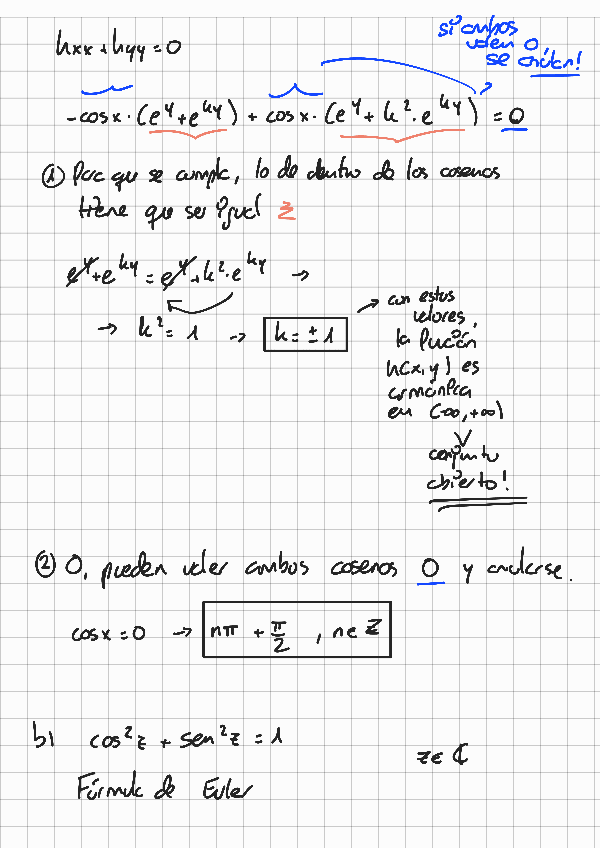 hxx + hyy = 0
si ambos
valen 0,
se anulan!
-cosx · (e^y + e^ky) + cosx · (e^y + k² · e^ky) = 0
① Para que se cumpla, lo de dentro de los cosenos
tiene que ser igual
e^y + e^ky = e^y + k² · e^ky →
→ k² = 1 → k = ± 1
→ con estos
valores,
la función
h(x,y) es
armónica
en (-∞, +∞)
conjunto
abierto!
② O, pueden valer ambos cosenos 0 y anularse.
cosx = 0 → nπ + π/2 , n ∈ Z
b) cos²z + sen²z = 1
z ∈ ℂ
Fórmula de Euler